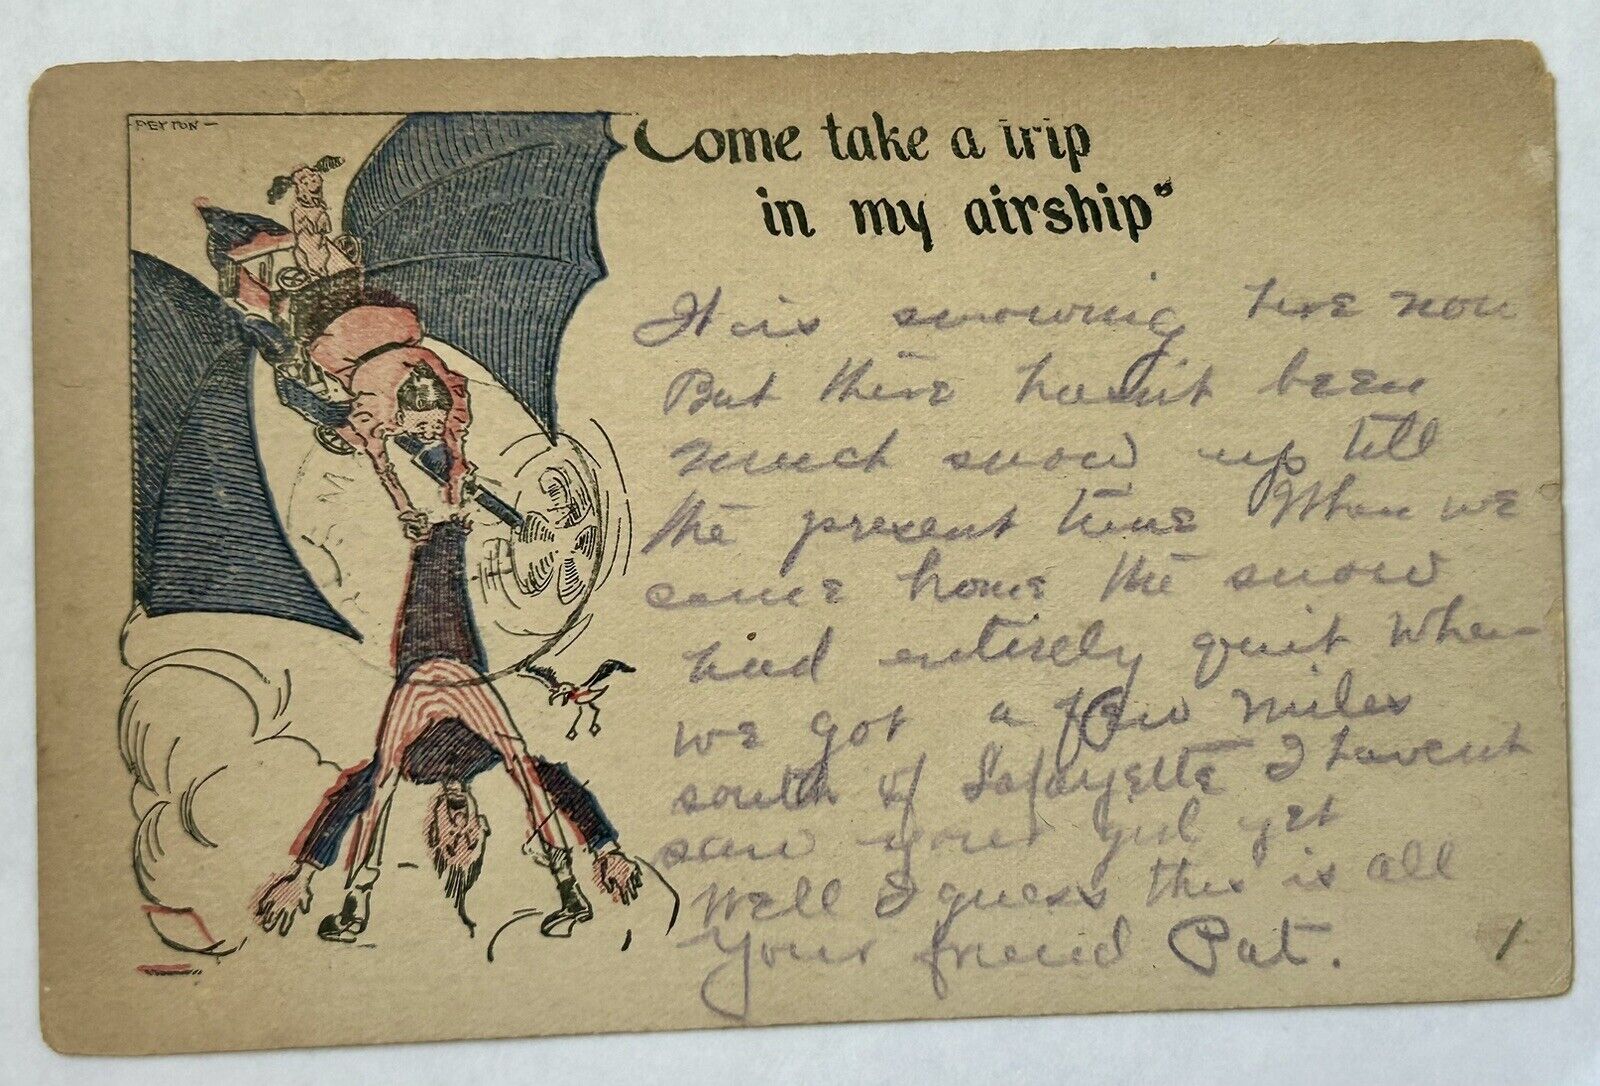 PEYTON
Come take a trip
in my airship"
It is snowing here now
But there hasn't been
much snow up till
the present time When we
came home the snow
had entirely quit when
we got a few miles
south of Lafayette I havent
saw your girl yet
Well I guess this is all
Your friend Pat.
1